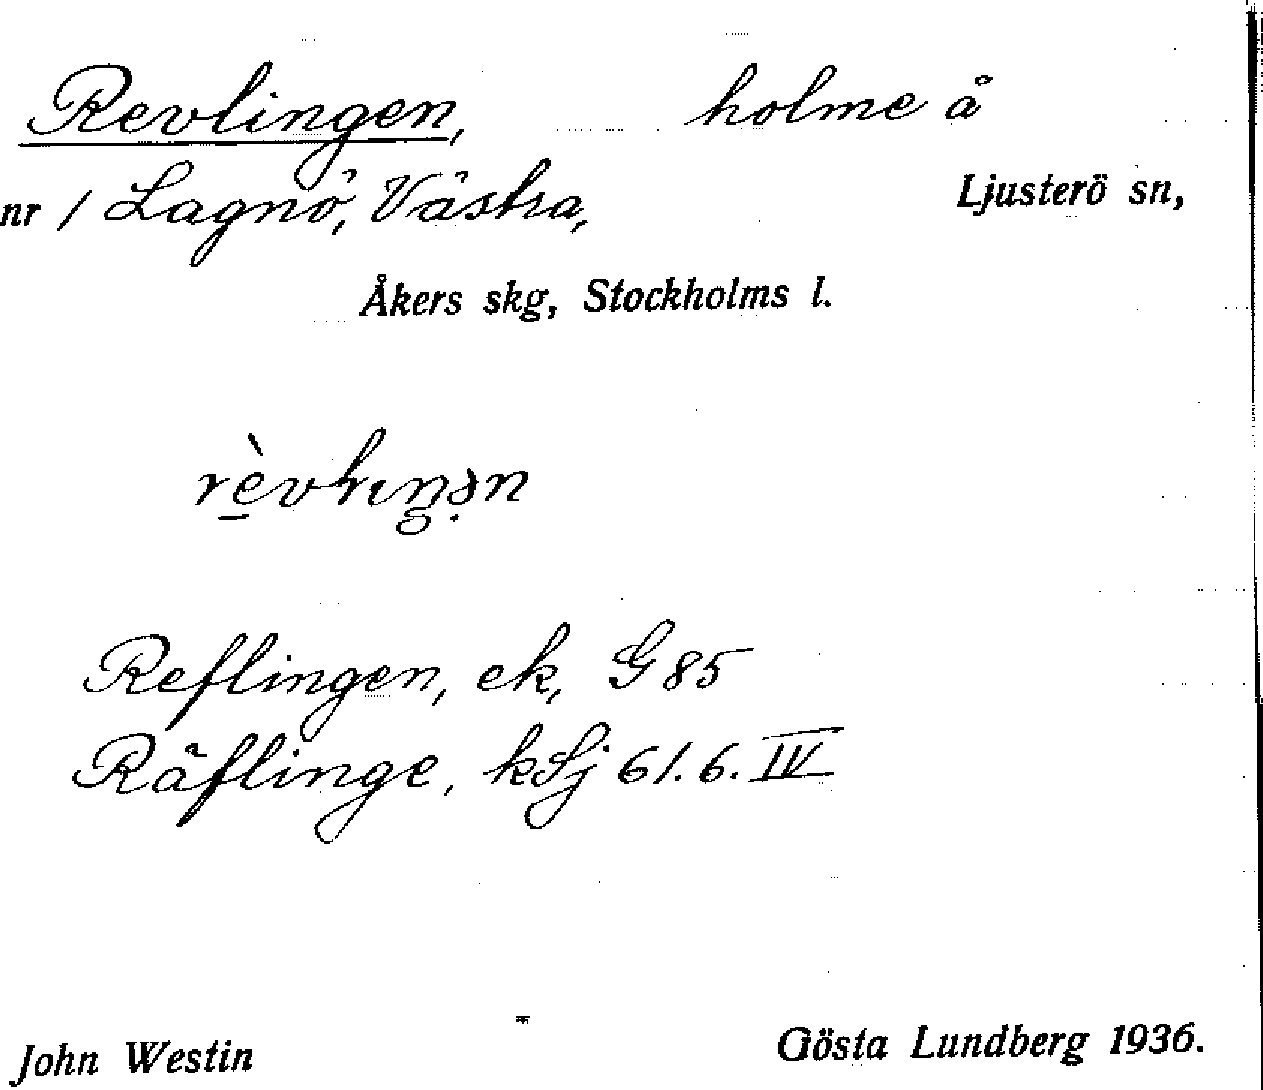 Revlingen, holme å
nr 1 Lagnö, Västra, Ljusterö sn,
Åkers skg, Stockholms l.
Reflingen, ek, G 85
Räflinge, kSj 61.6. IV
John Westin Gösta Lundberg 1936.